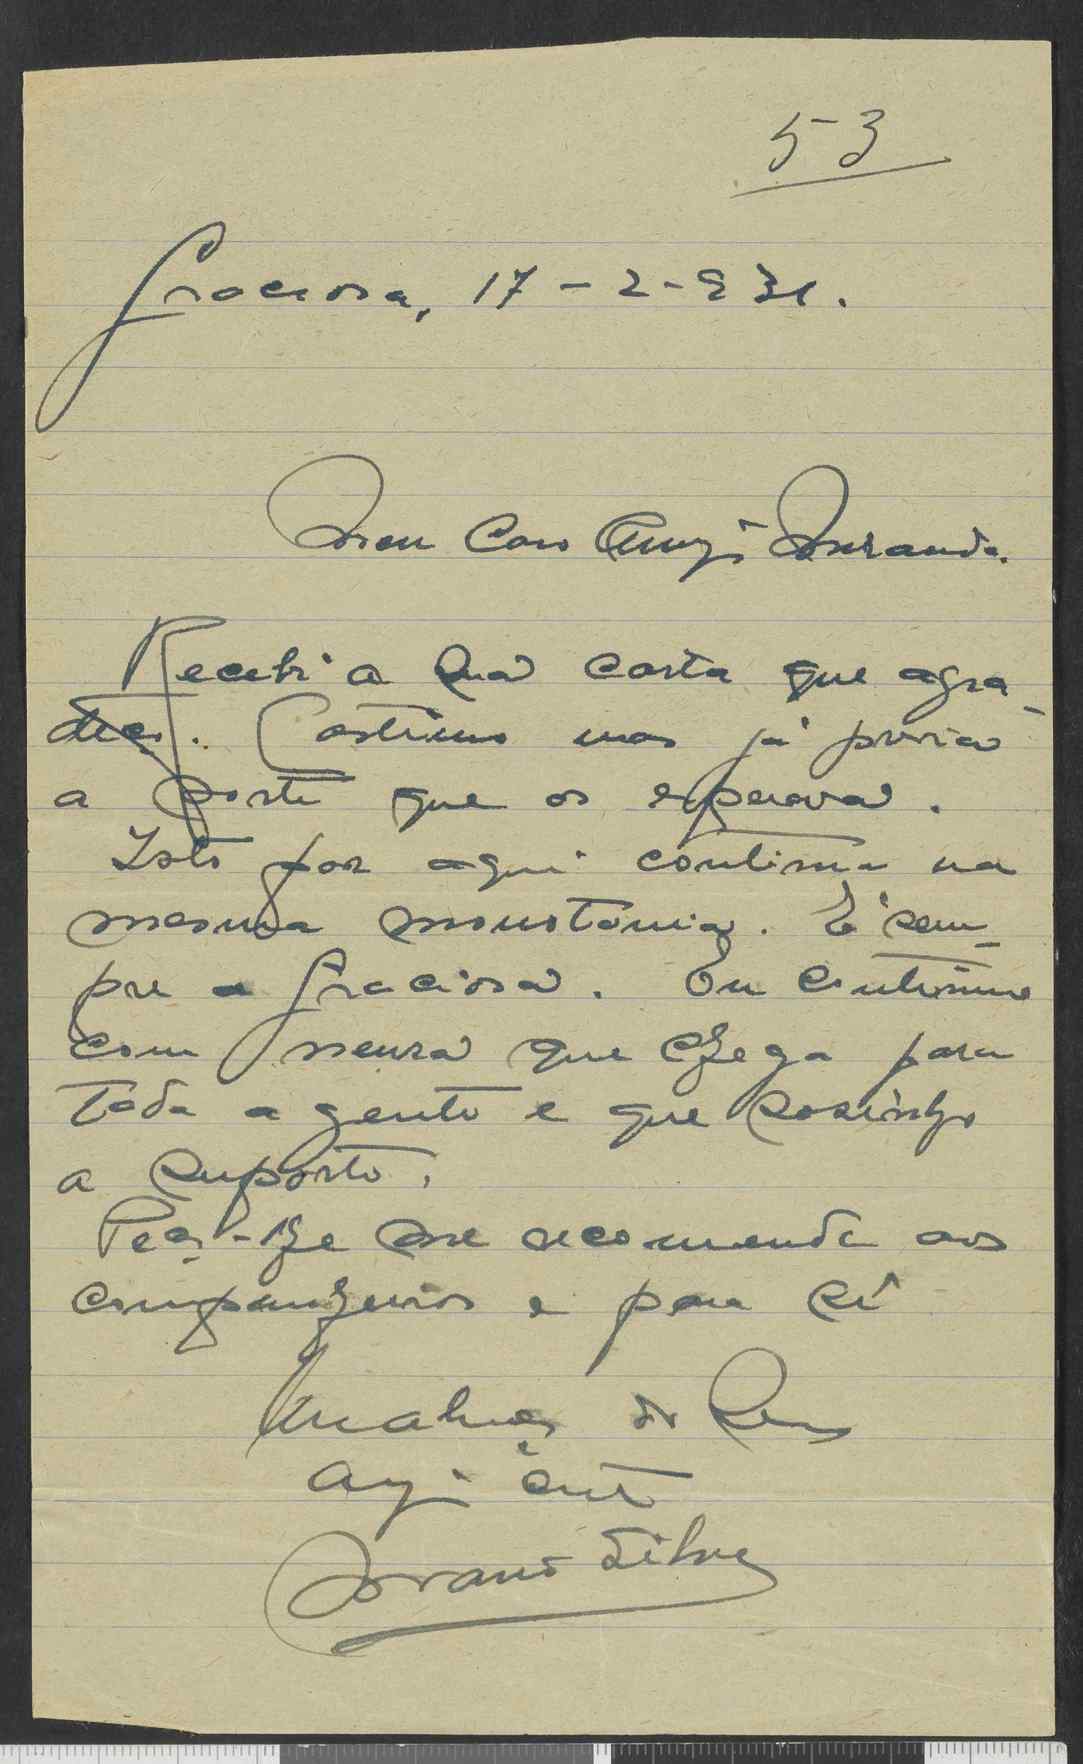 53
Graciosa, 17-2-931.
Meu Caro Amigo Miranda.
Recebi a sua carta que agra-
deço. Lastimo mas já previa
a sorte que os esperava.
Isto por aqui continua na
mesma monotonia. É sem-
pre a Graciosa. Eu continuo
com neura que chega para
toda a gente e que sosinho
a suporto.
Peço-lhe me recomende aos
companheiros e para si
um abraço do seu
Silva